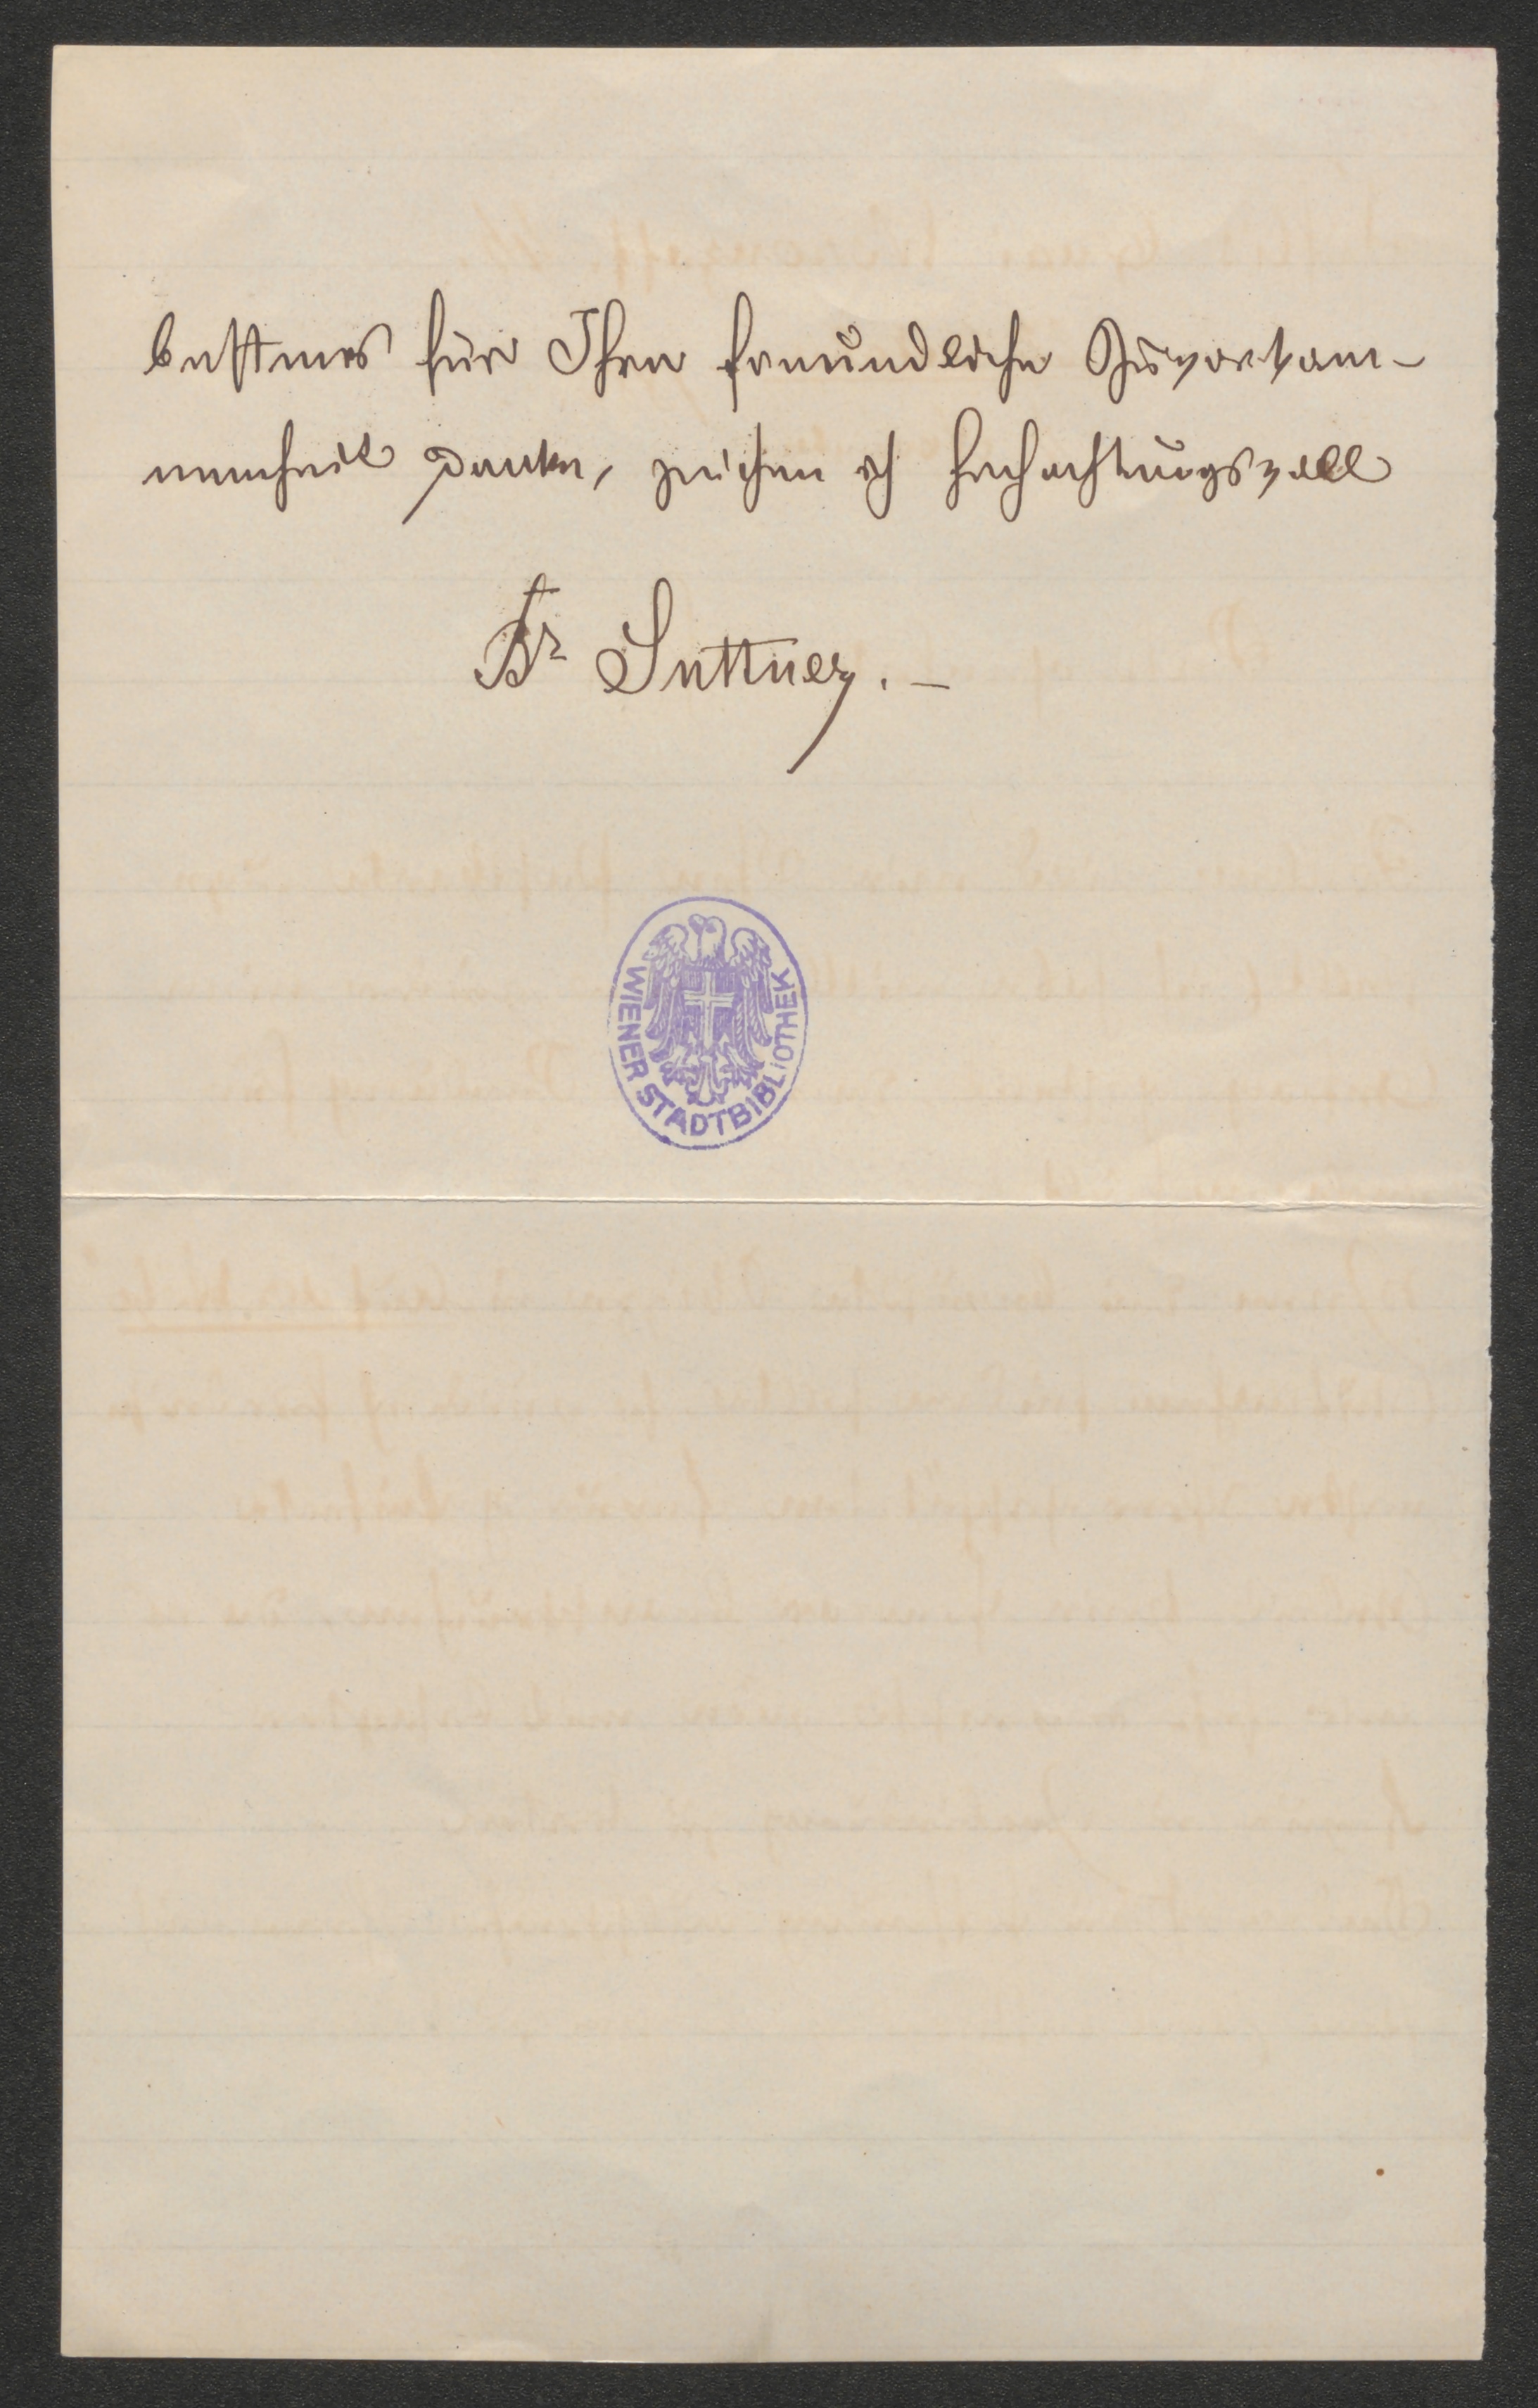 bestens für Ihre freundliche Zuvorkom-
menheit danke, zeichne ich hochachtungsvoll
Br Suttner. –
WIENER STADTBIBLIOTHEK